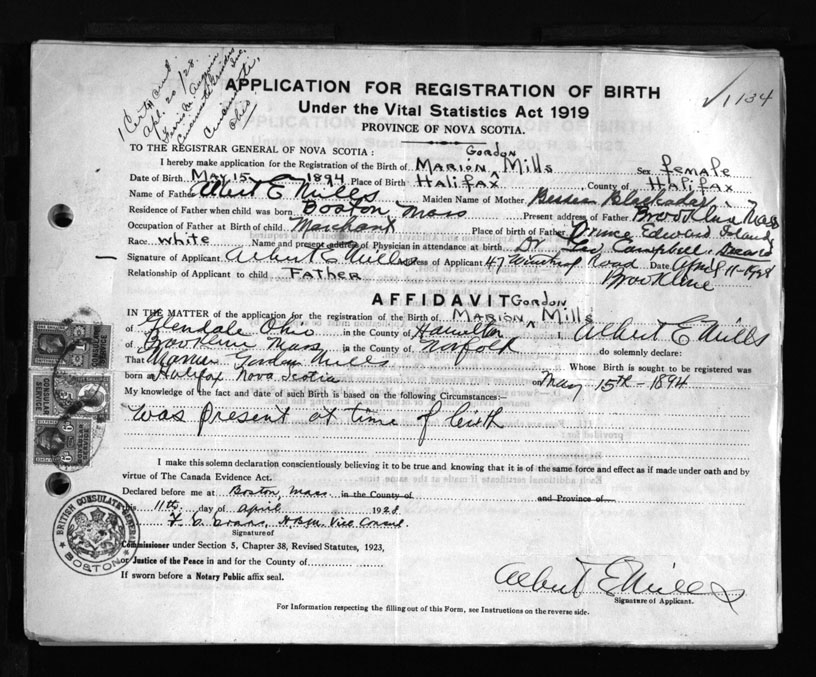 1 Cert and
Apl. 20/28.
Cincinnati,
Ohio
✓1134
APPLICATION FOR REGISTRATION OF BIRTH
Under the Vital Statistics Act 1919
PROVINCE OF NOVA SCOTIA.
TO THE REGISTRAR GENERAL OF NOVA SCOTIA:
I hereby make application for the Registration of the Birth of Marion Gordon Mills Sex female
Date of Birth May 15 1894 Place of Birth Halifax County of Halifax
Name of Father Albert E Mills Maiden Name of Mother Blackadar
Residence of Father when child was born Boston Mass Present address of Father Brookline Mass
Occupation of Father at Birth of child Merchant Place of birth of Father Prince Edward Island
Race white Name and present address of Physician in attendance at birth Dr Campbell
Signature of Applicant Albert E Mills Address of Applicant 47 Winthrop Road Date April 11-1928
Brookline
Relationship of Applicant to child Father
AFFIDAVIT
IN THE MATTER of the application for the registration of the Birth of Marion Gordon Mills
of Glendale Ohio in the County of Hamilton I, Albert E Mills
of Brookline Mass in the County of Norfolk do solemnly declare:
That Marion Gordon Mills Whose Birth is sought to be registered was
born at Halifax Nova Scotia on May 15th-1894
My knowledge of the fact and date of such Birth is based on the following Circumstances:-
was present at time of birth
I make this solemn declaration conscientiously believing it to be true and knowing that it is of the same force and effect as if made under oath and by
virtue of The Canada Evidence Act.
Declared before me at Boston, Mass. in the County of and Province of
this 11th day of April 1928
H.B.M. Vice Consul.
Signature of
Commissioner under Section 5, Chapter 38, Revised Statutes, 1923,
or Justice of the Peace in and for the County of
If sworn before a Notary Public affix seal.
Albert E Mills
Signature of Applicant.
For Information respecting the filling out of this Form, see Instructions on the reverse side.
CONSULAR SERVICE
BRITISH CONSULATE-GENERAL
BOSTON